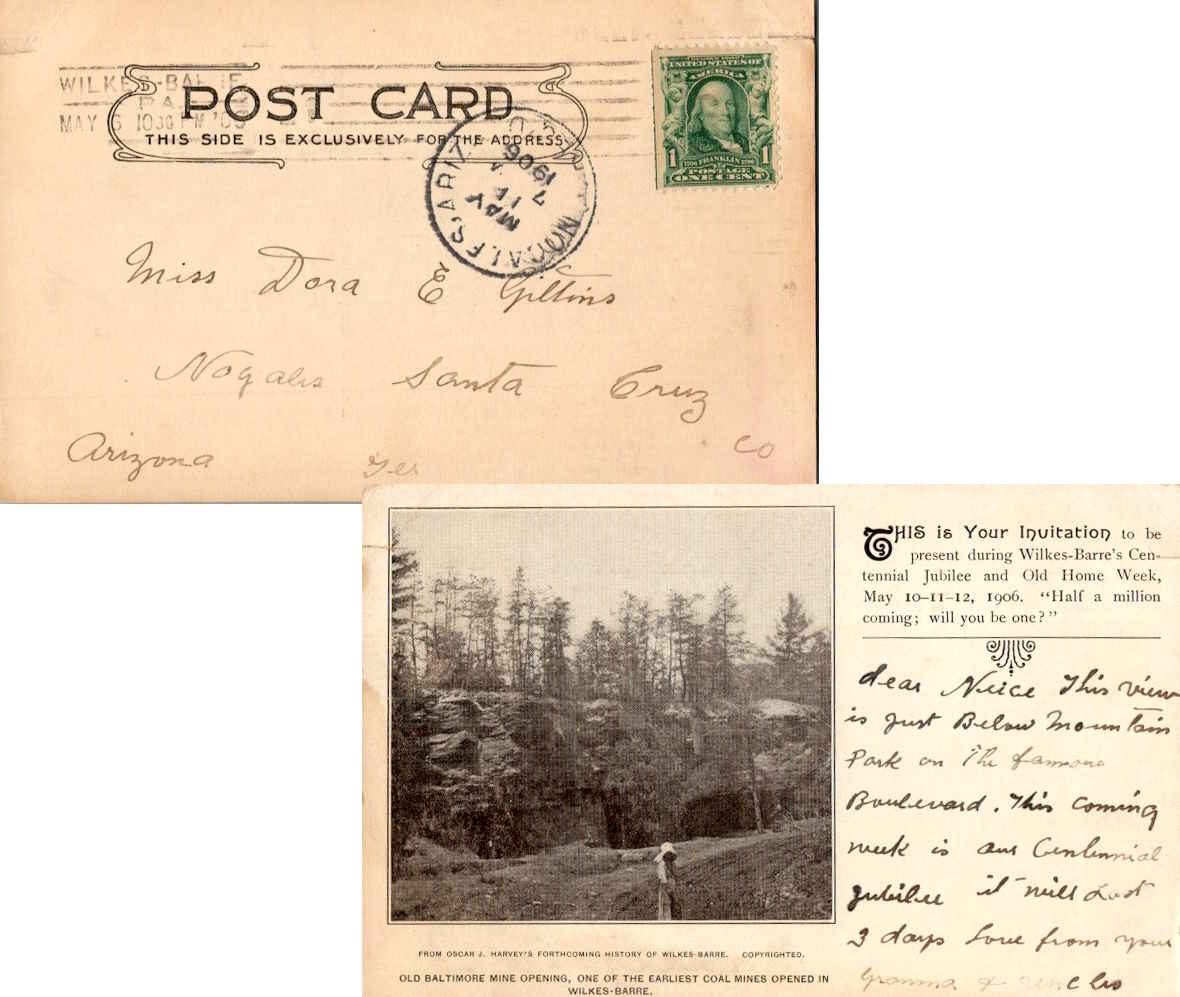 WILKES-BARRE
PA
MAY 6 1030 PM '06
POST CARD
THIS SIDE IS EXCLUSIVELY FOR THE ADDRESS
NOGALES, ARIZ
MAY
7
1906
UNITED STATES OF
AMERICA
1 FRANKLIN 1
POSTAGE
ONE CENT
Miss Dora E
Nogales Santa Cruz
Co
Arizona Ter
THIS is Your Invitation to be
present during Wilkes-Barre's Cen-
tennial Jubilee and Old Home Week,
May 10-11-12, 1906. "Half a million
coming; will you be one?"
dear Neice This view
is just Below Mountain
Park on The famous
Boulevard. This coming
week is our Centennial
jubilee it will Last
3 days Love from your
Granma & uncles
FROM OSCAR J. HARVEY'S FORTHCOMING HISTORY OF WILKES-BARRE. COPYRIGHTED.
OLD BALTIMORE MINE OPENING, ONE OF THE EARLIEST COAL MINES OPENED IN
WILKES-BARRE.